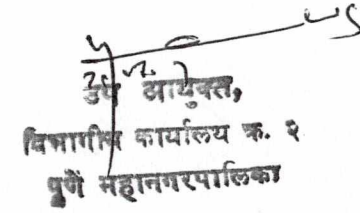 उप आयुक्त,
विभागीय कार्यालय क्र. २
पुणें महानगरपालिका